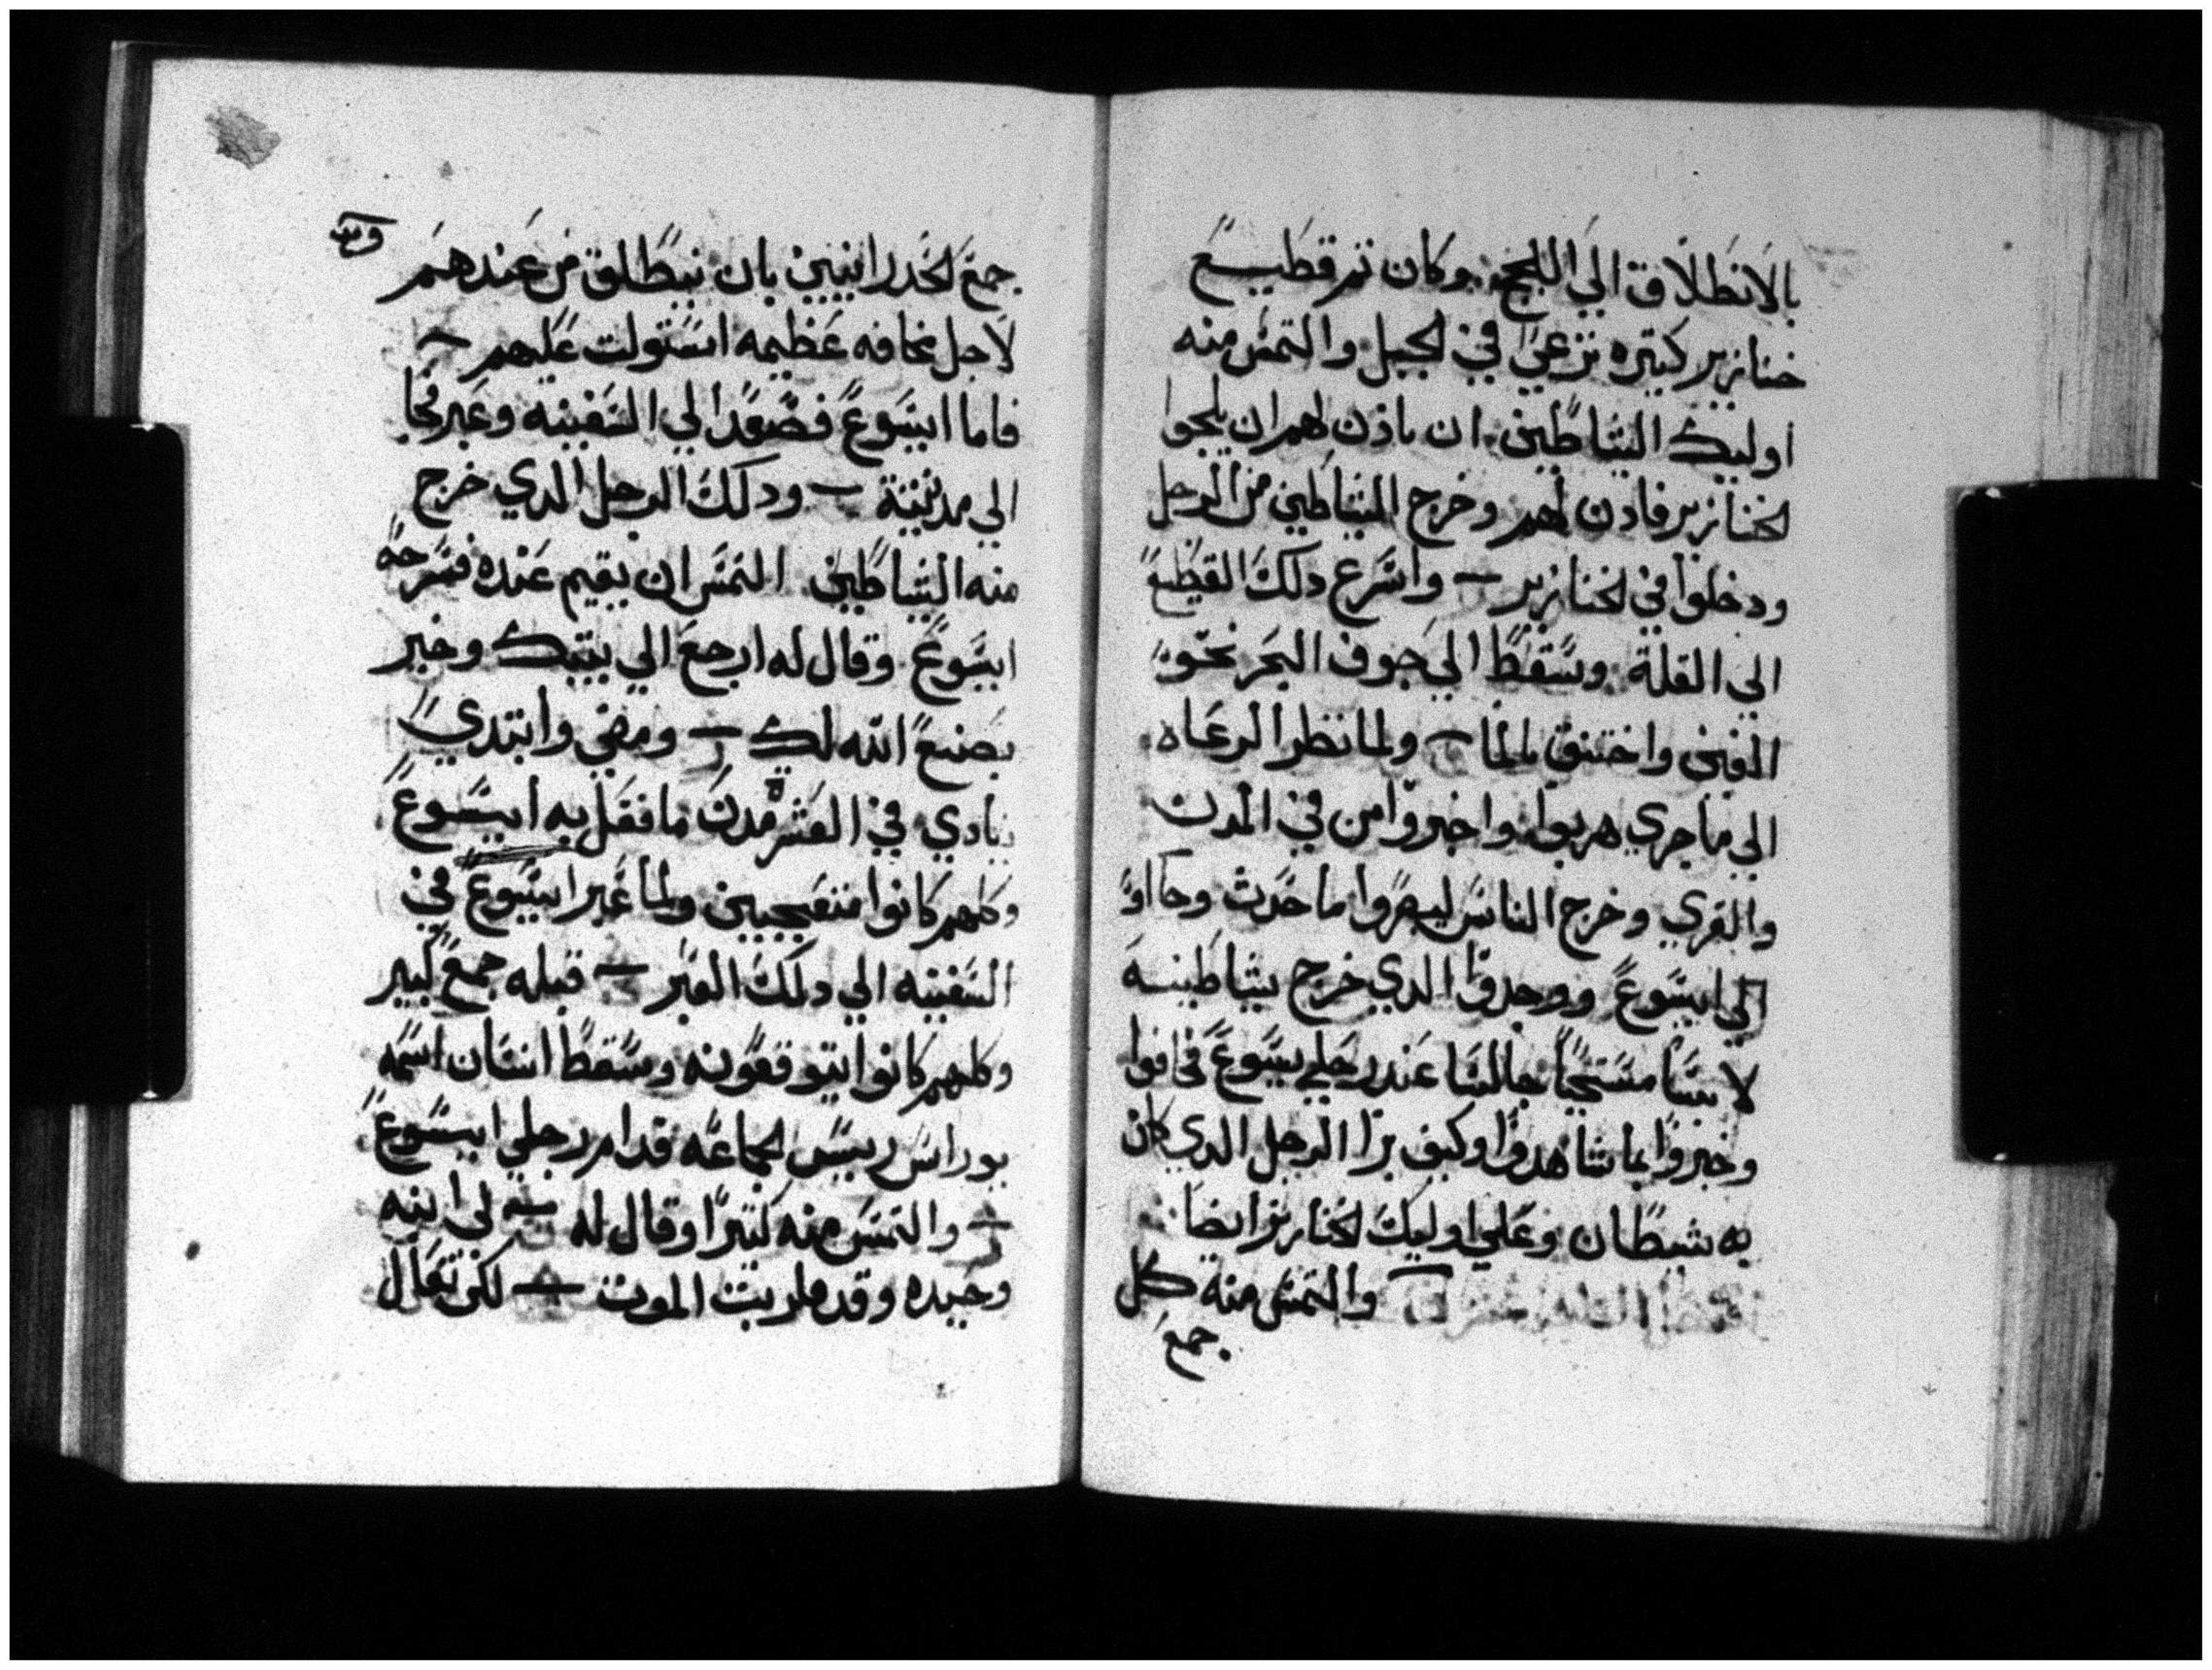 بالانطلاق الي اللجج. وكان تم قطيع
خنازير كتيره ترعي في الجبل والتمس منه
اوليك الشاطين. ان ياذن لهم ان يلجوا
الخنازير فاذن لهم وخرج الشاطين من الرجل
ودخلوا في الخنازير واسرع دلك القطيع
الي القلة. وسقط الي جوف البحر نحو
الفين واختنق بالما ولما نظر الرعاه
الي ما جري هربوا. واخبروا من في المدن
والقري وخرج الناس ليبصروا ما حدث وجااوا
الي ايسوع ووجدوا الدي خرج شاطينه
لابسا مستحيا جالسا عند رجلي يسوع فخافوا
وخبروا بما شاهدوا وكيف برا الرجل الدي كان
به شيطان وعلي اوليك الخنازير ايضا
والتمس منه كل
جمع
جمع الخدرانيين بان ينطلق من عندهم
لاجل مخافه عظيمه استولت عليهم
فاما ايسوع فصعد الي السفينه وعبر فجا
الي مدينتة ودلك الرجل الدي خرج
منه الشاطين. التمس ان يقيم عنده فسرحه
ايسوع وقال له ارجع الي بيتك وخبر
بصنيع الله لك ومضي وابتدي
ينادي في العشرة مدن ما فعل به ايسوع
وكلهم كانوا متعجبين ولما عبر ايسوع في
السفينه الي دلك العبر قبله جمع كبير
وكلهم كانوا يتوقعونه وسقط انسان اسمه
يوراس رييس الجماعه قدام رجلي ايسوع
والتمس منه كتيرا وقال له لي ابنه
وحيده وقد قاربت الموت لكن تعال